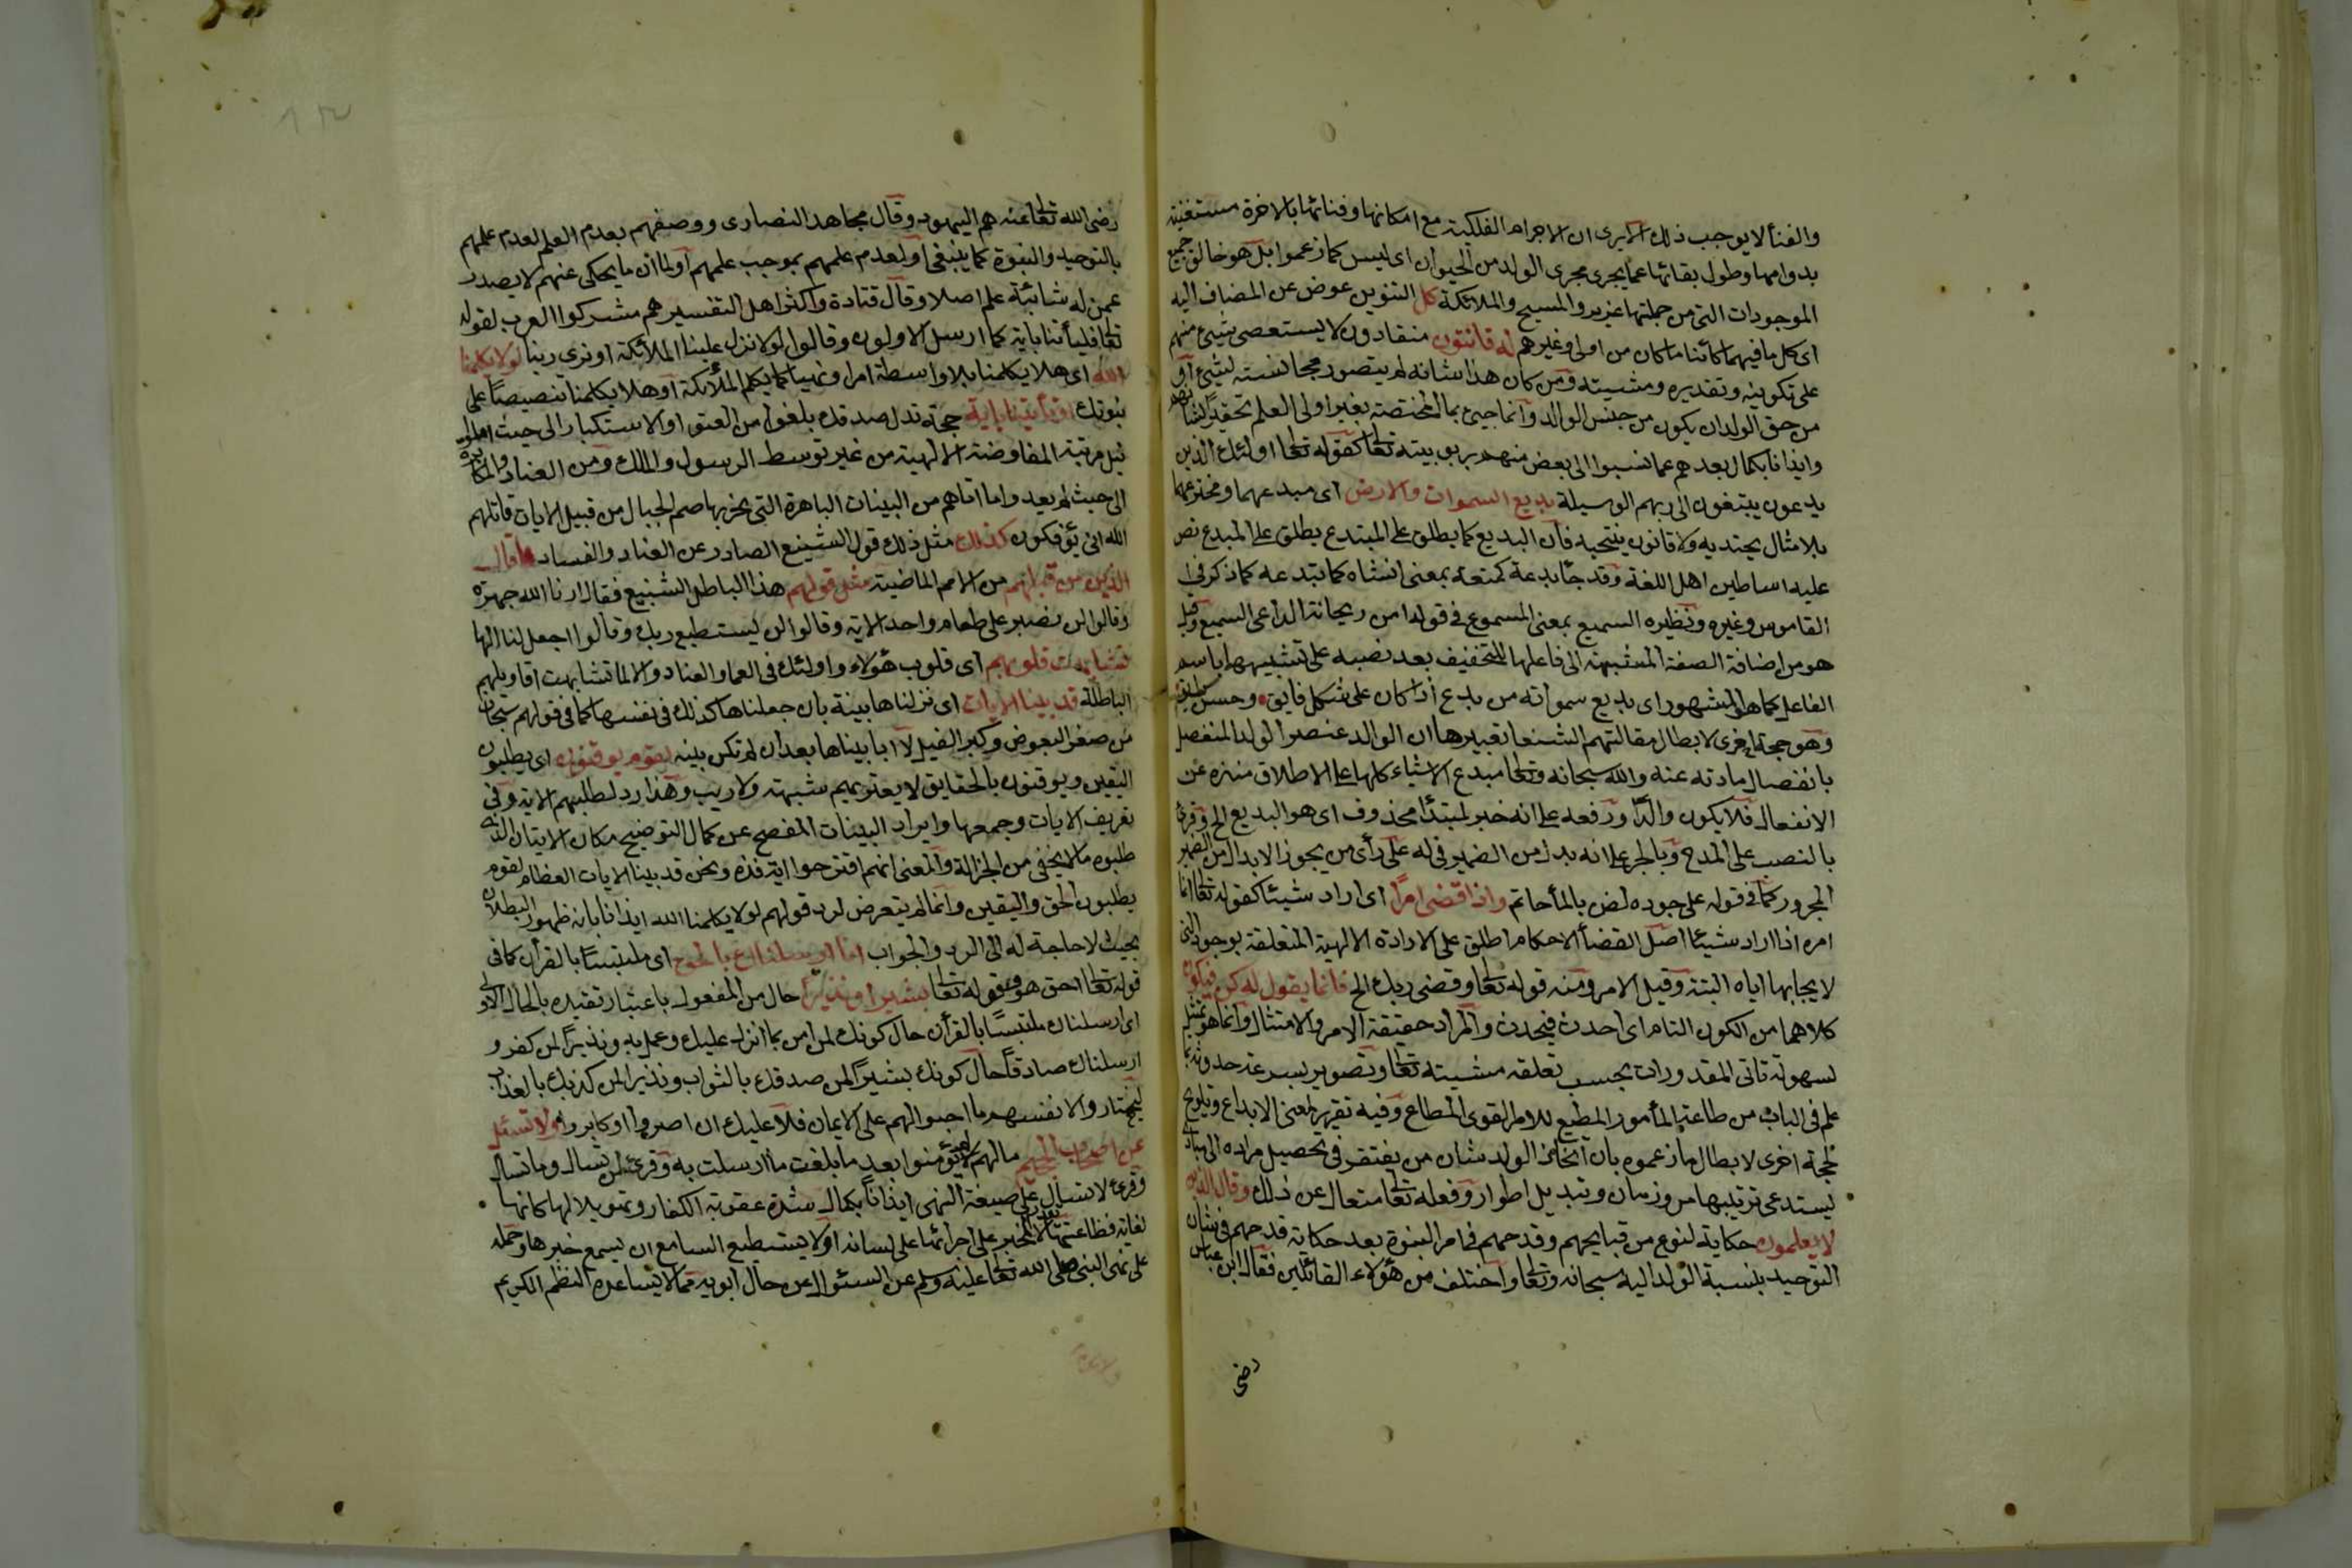 والفنأ لا يوجب ذلك الا يرى ان الاجرام الفلكية مع امكانها وفنائها بالاخرة مستغنية
بدوامها وطول بقائها عما يجرى مجرى الولد من الحيوان اى ليس كما زعموا بل هو خالق جميع
الموجودات التى من جملتها عزير والمسيح والملائكة كل التنوين عوض عن المضاف اليه
اى كل ما فيهما كائنا ما كان من اولى وغيرهم له قانتون منقادون لا يستعصى شيئ منهم
على تكوينه وتقديره ومشيته ومن كان هذا شانه لم يتصور مجانسته لشيئ او
من حق الولد ان يكون من جنس الوالد وانما جيئ بما المختصة بغير اولى العلم تحقيرًا لشانهم
وايذانا بكمال بعدهم عما نسبوا الى بعض منهم بربوبيته تعا كقوله تعا اولئك الذين
يدعون يبتغون الى ربهم الوسيلة بديع السموات والارض اى مبدعهما ومخترعهما
بلا مثال يحتذيه ولا قانون ينتحيه فان البديع كما يطلق على المبتدع يطلق على المبدع نص
عليه اساطين اهل اللغة وقد جأ بدعه كمنعه بمعنى انشأه كابتدعه كما ذكر فى
القاموس وغيره ونظيره السميع بمعنى المسموع فى قوله امن ريحانة الداعى السميع وقيل
هو من اضافة الصفة المشبهة الى فاعلها للتخفيف بعد نصبه على تشبيهها باسم
الفاعل كما هو المشهور اى بديع سمواته من بدع اذا كان على شكل فايق وحسن رايق
وهو حجة اخرى لابطال مقالتهم الشنعا تقبيرها ان الوالد عنصر الولد المنفصل
بانفصال مادته عنه والله سبحانه وتعا مبدع الاشياء كلها على الاطلاق منزه عن
الانفعال فلا يكون والدًا ورفعه على انه خبر لمبتدأ محذوف اى هو البديع الخ وقرئ
بالنصب على المدح وبالجر على انه بدل من الضمير فى له على رأى من يجوز الابدال من الضمير
المجرور كما فى قوله على جوده لضن بالمأ حاتم واذا قضى امرًا اى اراد شيئا كقوله تعا انما
امره اذا اراد شيئا اصل القضأ الاحكام اطلق على الارادة الالهية المتعلقة بوجود الشئ
لايجابها اياه البتة وقيل الامر ومنه قوله تعا وقضى ربك الخ فانما يقول له كن فيكون
كلاهما من الكون التام اى احدث فيحدث والمراد حقيقة الامر والامتثال وانما هو تمثيل
لسهولة تاتى المقدورات بحسب تعلقه مشيته تعا وتصوير بسرعة حدوثها بما
علم فى الباب من طاعة المأمور المطيع للامر القوى المطاع وفيه تقرير لمعنى الابداع وتلويح
لحجة اخرى لابطال ما زعموه بان اتخاذ الولد شان من يفتقر فى تحصيل مراده الى مبادى
يستدعى ترتيبها مرور زمان وتبديل اطوار وفعله تعا متعال عن ذلك وقال الذين
لا يعلمون حكاية لنوع من قبايحهم وقدحهم فى امر النبوة بعد حكاية قدحهم فى شان
التوحيد بنسبة الولد اليه سبحانه وتعا واختلف من هؤلاء القائلين فقال ابن عباس
رضى
رضى الله تعا عنه هم اليهود وقال مجاهد النصارى ووصفهم بعدم العلم لعدم علمهم
بالتوحيد والنبوة كما ينبغى او لعدم علمهم بموجب علمهم او لما ان ما يحكى عنهم لا يصدر
عمن له شائبة علم اصلا وقال قتادة واكثر اهل التفسير هم مشركوا العرب لقوله
تعا فليأتنا باية كما ارسل الاولون وقالوا لولا نزل علينا الملائكة او نرى ربنا لولا يكلمنا
الله اى هلا يكلمنا بلا واسطة امرا ونهيا كما يكلم الملائكة او هلا يكلمنا تنصيصًا على
نبوتك او تأتينا باية حجة تدل صدقك بلغوا من العتو او الاستكبار الى حيث املوا
نيل مرتبة المفاوضة الالهية من غير توسط الرسول والملك ومن العناد والمكابرة
الى حيث لم يعدوا ما اتاهم من البينات الباهرة التى يخر بها صم الجبال من قبيل الايات قاتلهم
الله انى يؤفكون كذلك مثل ذلك قول الشنيع الصادر عن العناد والفساد قال
الذين من قبلهم من الامم الماضية مثل قولهم هذا الباطل الشنيع فقالوا ارنا الله جهرة
وقالوا لن نصبر على طعام واحد الاية وقالوا لن يستطيع ربك وقالوا اجعل لنا الها
تشابهت قلوبهم اى قلوب هؤلاء واولئك فى العما والعناد والا لما تشابهت اقاويلهم
الباطلة قد بينا الايات اى نزلناها بينة بان جعلناها كذلك فى انفسها كما فى قولهم سبحان
من صغر البعوض وكبر الفيل لا انا بيناها بعد ان لم تكن بينة لقوم يوقنون اى يطلبون
اليقين ويوقنون بالحقايق لا يعتريهم شبهة ولا ريب وهذا رد لطلبهم الاية وفى
تعريف الايات وجمعها وايراد البينات المفصح عن كمال التوضيح مكان الاتيان الذى
طلبوه ما لا يخفى من الجزالة والمعنى انهم اقترحوا اية فذة ونحن قد بينا الايات العظام لقوم
يطلبون الحق واليقين وانما لم يتعرض لرد قولهم لولا يكلمنا الله ايذانا بانه ظهور البطلان
بحيث لا حاجة له الى الرد والجواب انا ارسلناك بالحق اى ملتبسًا بالقرأن كما فى
قوله تعا احق هو وقوله تعا بشيرا ونذيرا حال من المفعول باعتبار تقيده بالحال الاولى
اى ارسلناك ملتبسًا بالقرأن حال كونك لمن امن بما انزل عليك وعمل به ونذيرًا لمن كفر و
ارسلناك صادقًا حال كونك بشيرًا لمن صدقك بالثواب ونذيرا لمن كذبك بالعذاب
ليختاروا لانفسهم ما احبوا لهم على الايمان فلا عليك ان اصروا او كابروا ولا تسئل
عن اصحاب الجحيم ما لهم لم يؤمنوا بعد ما بلغت ما ارسلت به وقرئ لن تسال وما تسال
وقرئ لا تسال على صيغة النهى ايذانًا بكمال شدة عقوبة الكفار وتهويلا لها كانها
لغاية فظاعتها لا يقدر المخبر على اجرائها على لسانه او لا يستطيع السامع ان يسمع خبرها وحمله
على نهى النبى صلى الله تعا عليه وسلم عن السئوال عن حال ابويه مما لا يساعده النظم الكريم